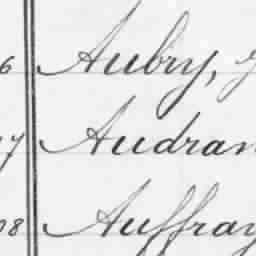 6 Aubry,
7 Audran
08 Auffray